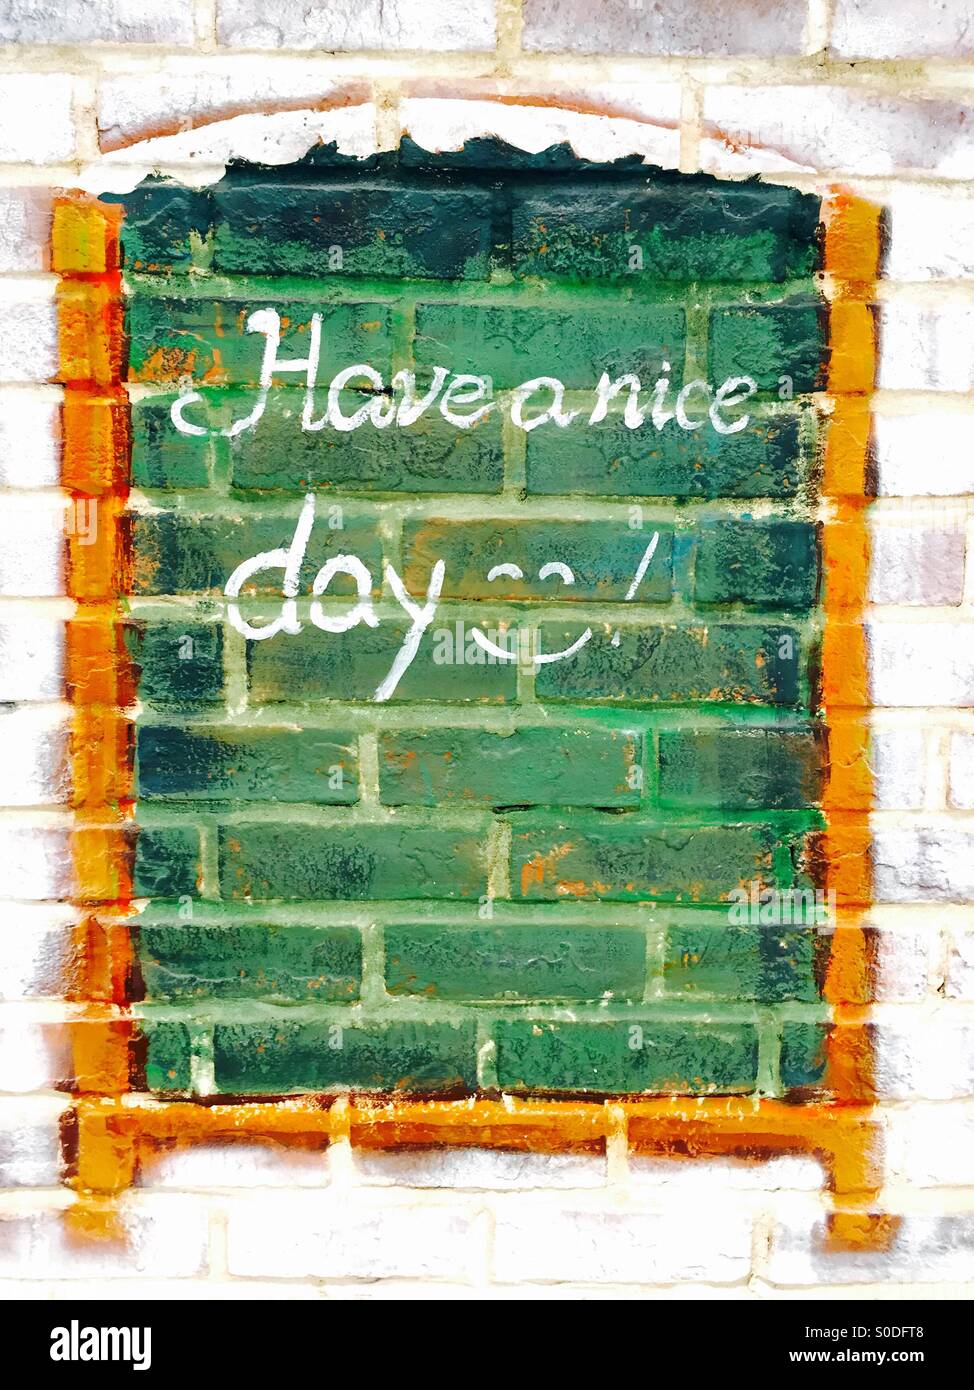 Have a nice
day !
alamy
Image ID: S0DFT8
www.alamy.com